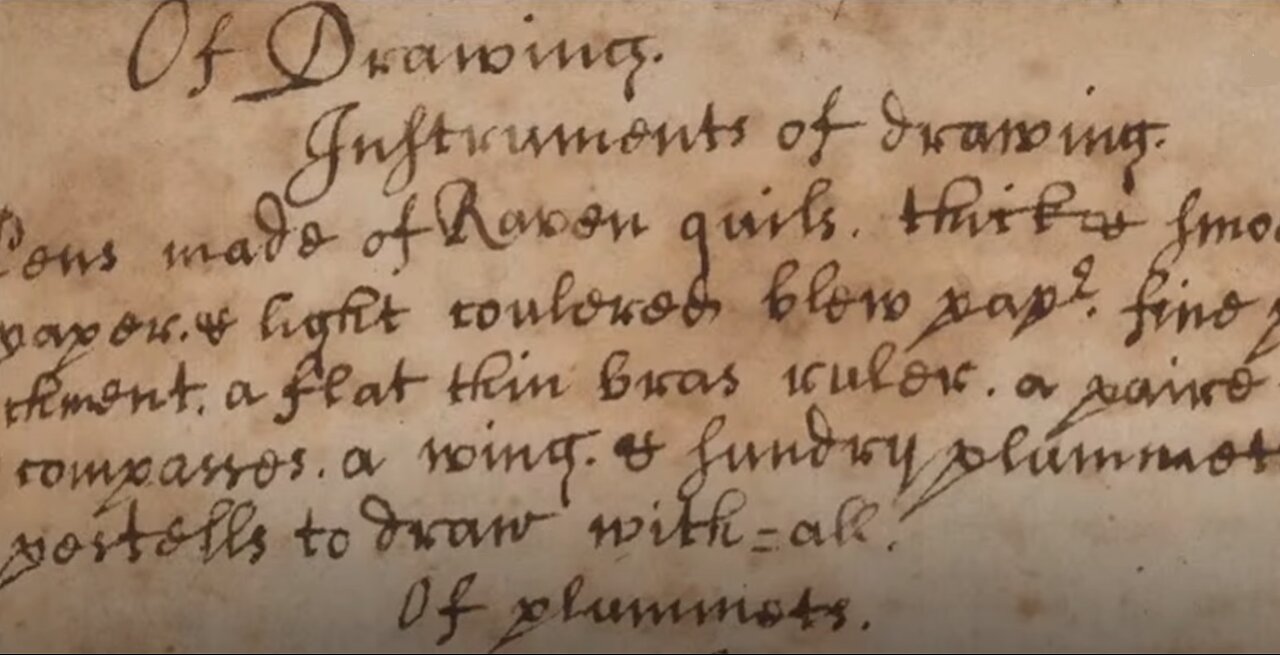 Of Drawing.
Instruments of drawing.
Pens made of Raven quils. thick & smoo
paper. & light coulered blew papʳ. fine p
tchment. a flat thin bras ruler. a paire
compasses. a wing. & sundry plummet
pestells to draw with=all.
Of plummets.